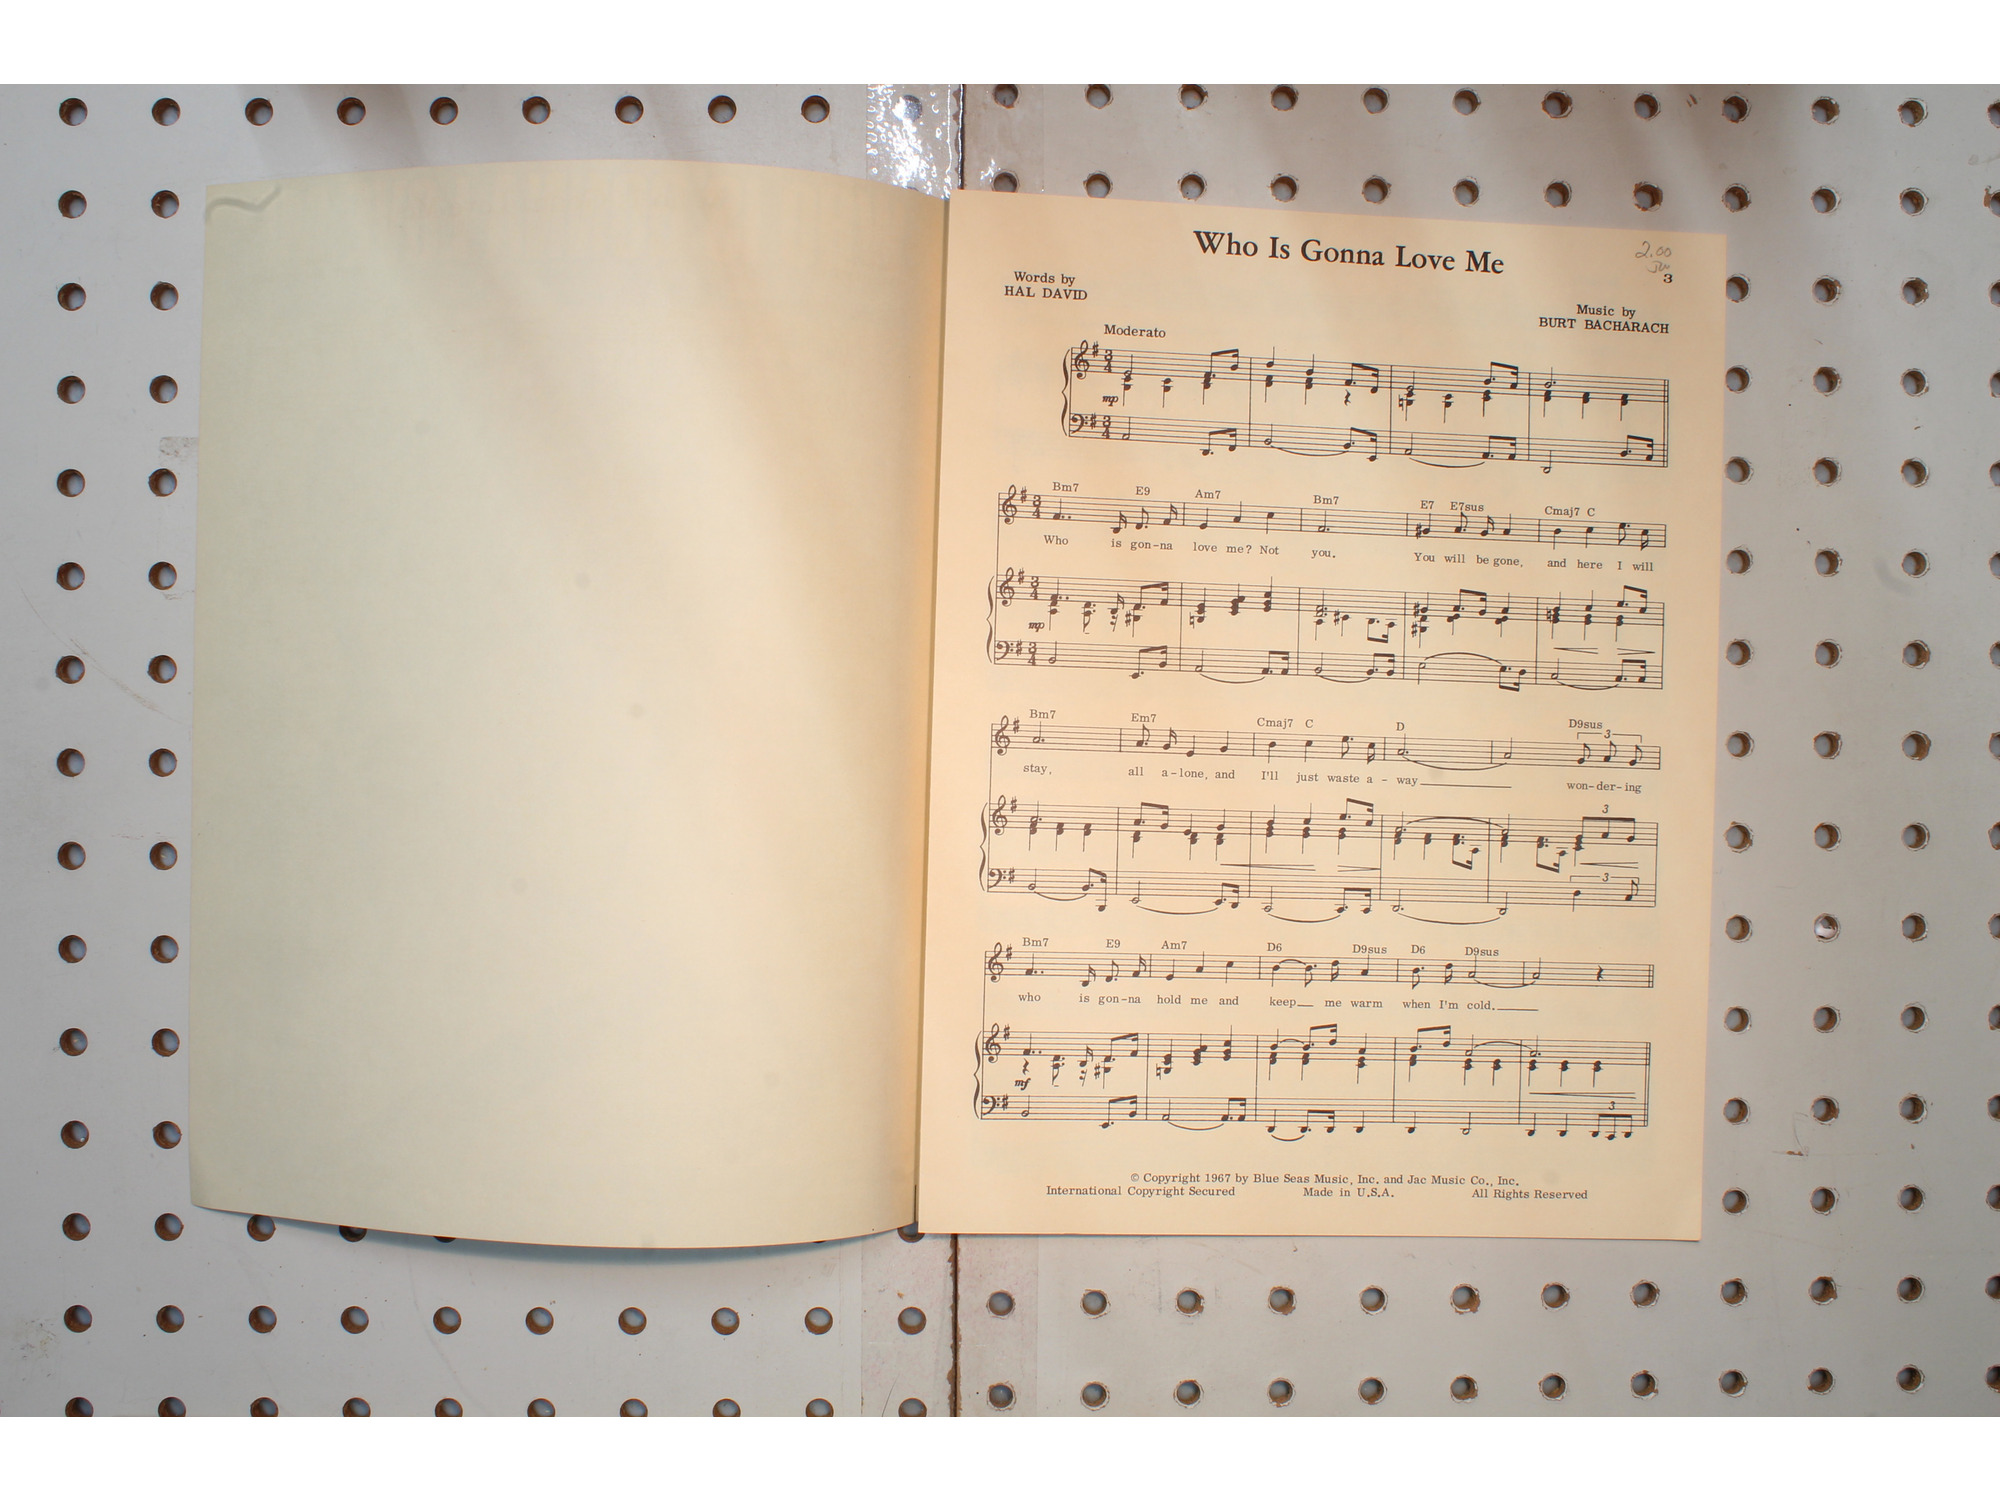 Who Is Gonna Love Me
2.00
3
Words by
HAL DAVID
Music by
BURT BACHARACH
Moderato
mp
Bm7 E9 Am7 Bm7 E7 E7sus Cmaj7 C
Who is gon-na love me? Not you. You will be gone, and here I will
mp
Bm7 Em7 Cmaj7 C D D9sus
3
stay, all a-lone, and I'll just waste a - way won-der-ing
3
3
Bm7 E9 Am7 D6 D9sus D6 D9sus
who is gon-na hold me and keep me warm when I'm cold.
mf
3
© Copyright 1967 by Blue Seas Music, Inc. and Jac Music Co., Inc.
International Copyright Secured Made in U.S.A. All Rights Reserved